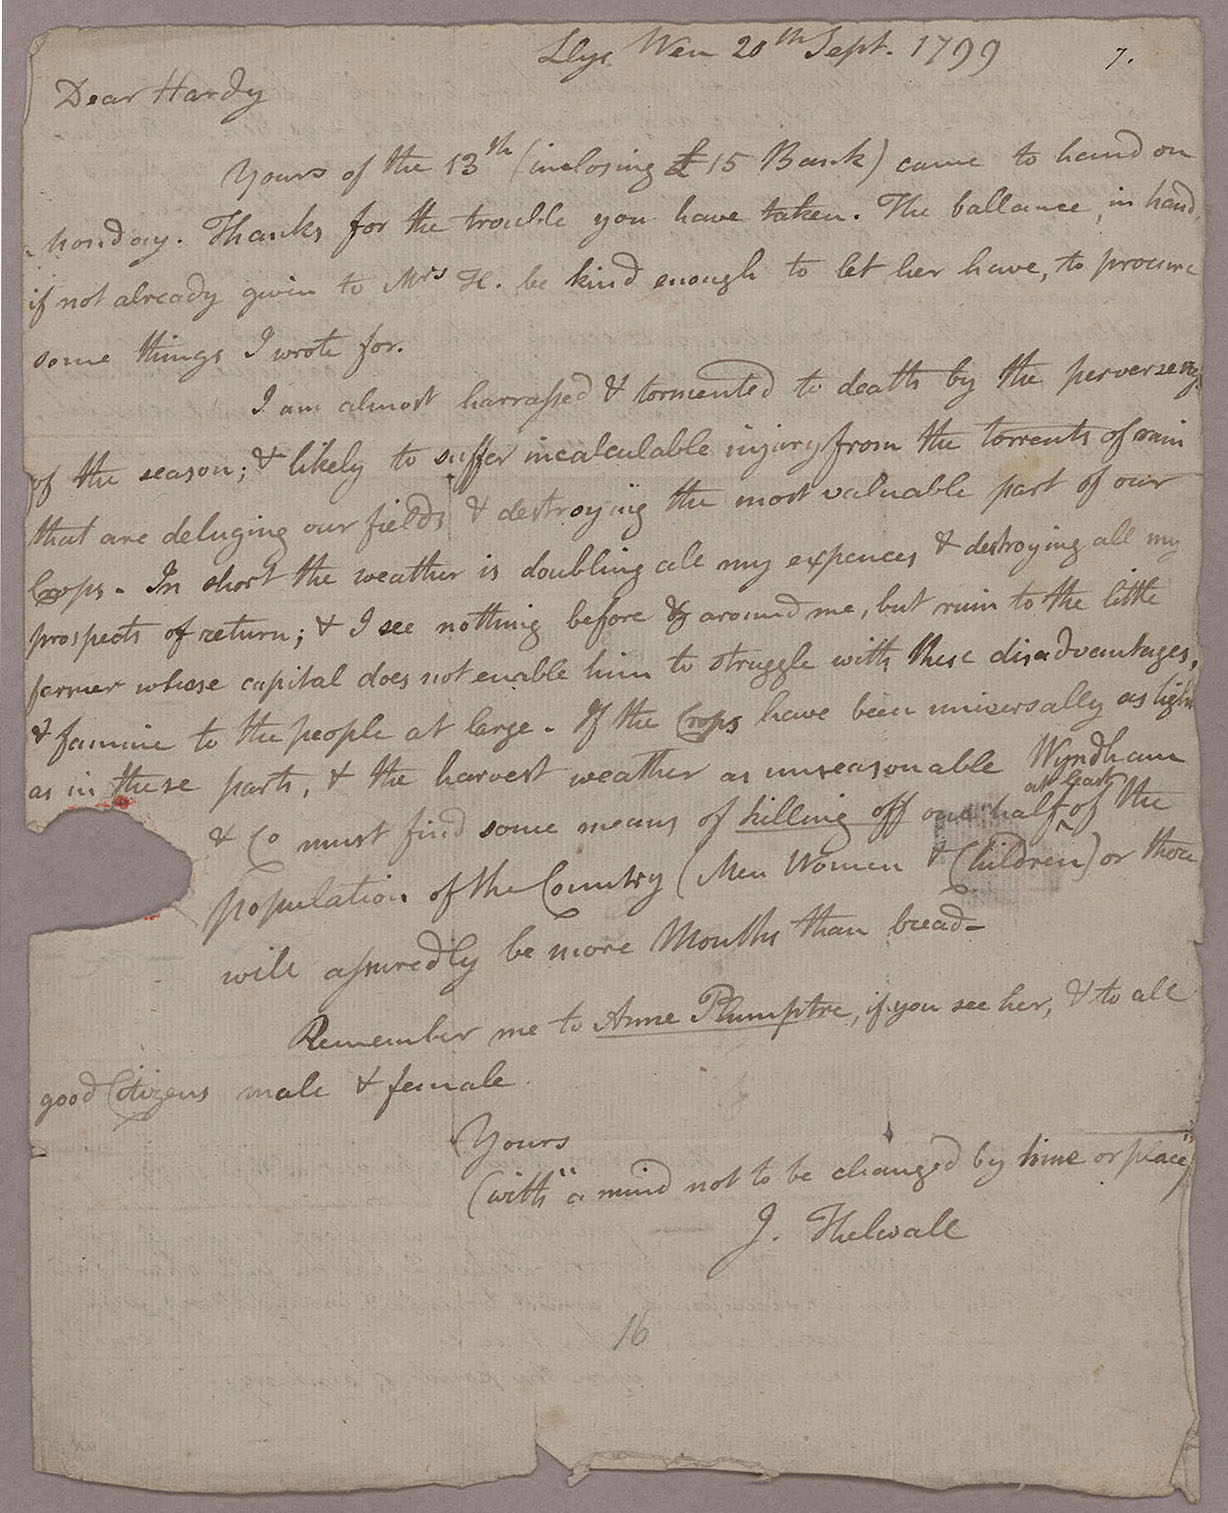 Llys Wen 20th Sept. 1799 7.
Dear Hardy
Yours of the 13th (inclosing £15 Bank) came to hand on
Monday. Thanks for the trouble you have taken. The ballance, in hand,
if not already given to Mrs H. be kind enough to let her have, to procure
some things I wrote for.
I am almost harrassed & tormented to death by the perverseness
of the season; & likely to suffer incalculable injury from the torrents of rain
that are deluging our fields & destroying the most valuable part of our
Crops. In short the weather is doubling all my expences & destroying all my
prospects of return; & I see nothing before & around me, but ruin to the little
farmer whose capital does not enable him to struggle with these disadvantages,
& famine to the people at large. If the Crops have been universally as light
as in these parts, & the harvest weather as unseasonable Wyndham
& Co must find some means of killing off one half at least of the
population of the Country (Men Women & Children) or there
will assuredly be more Mouths than bread-
Remember me to Anne Plumptre, if you see her, & to all
good Citizens male & female
Yours
(with "a mind not to be changed by time or place")
J. Thelwall
16